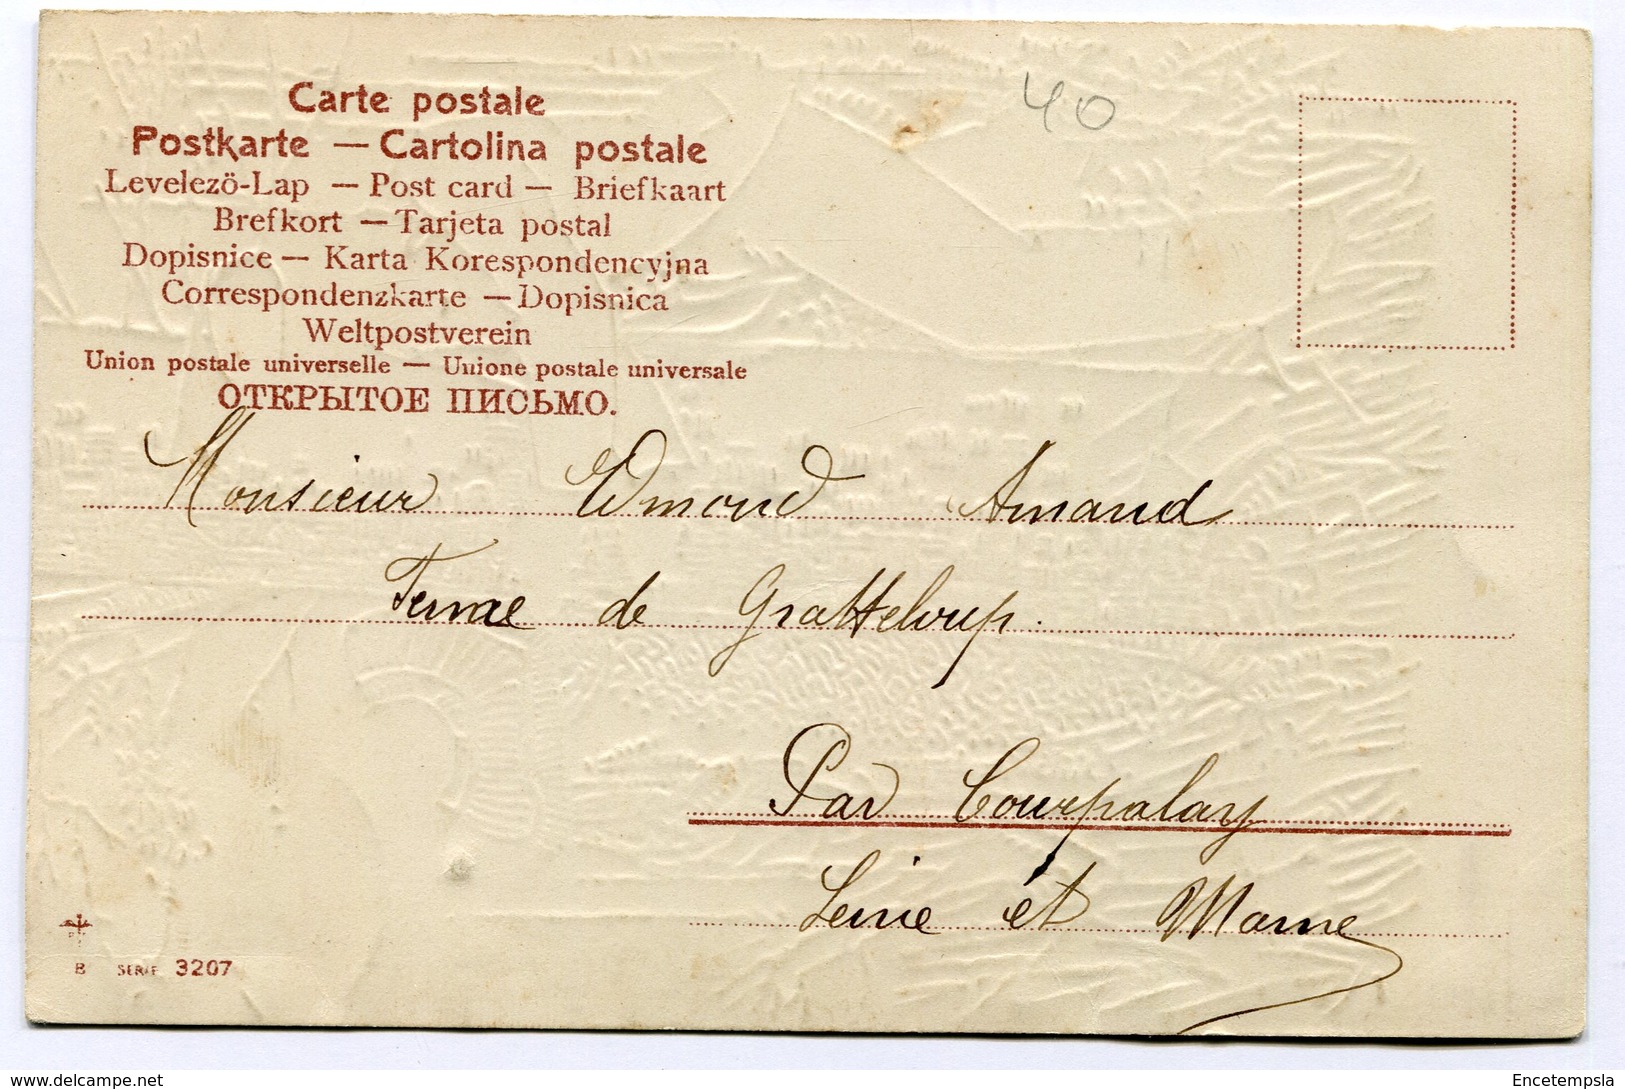 Carte postale
Postkarte — Cartolina postale
Levelezö-Lap — Post card — Briefkaart
Brefkort — Tarjeta postal
Dopisnice — Karta Korespondencyjna
Correspondenzkarte — Dopisnica
Weltpostverein
Union postale universelle — Unione postale universale
ОТКРЫТОЕ ПИСЬМО.
40
Monsieur Edmond Amand
Ferme de Gratteloup.
Par Courpalay
Seine et Marne
B SERIE 3207
delcampe.net
Encetempsla